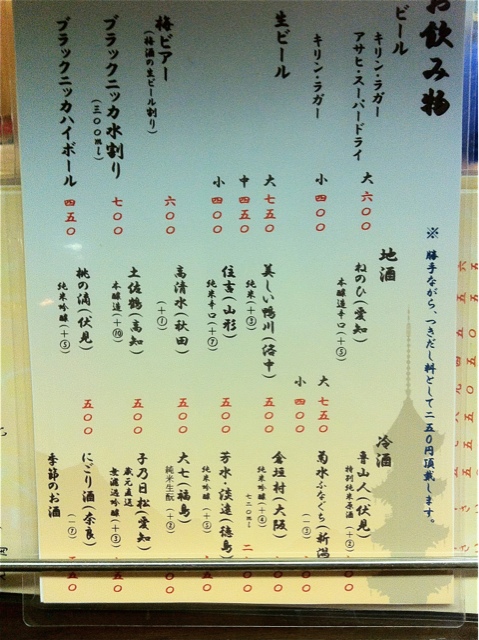 お飲み物
ビール
キリン・ラガー
アサヒ・スーパードライ
大 六〇〇
キリン・ラガー
小 四〇〇
生ビール
大 七五〇
中 四五〇
小 四〇〇
梅ビアー
(梅酒の生ビール割り)
六〇〇
ブラックニッカ水割り
(三〇〇ml)
七〇〇
ブラックニッカハイボール
四五〇
※ 勝手ながら、つきだし料として二五〇円頂戴します。
地酒
ねのひ(愛知)
本醸造辛口(+⑤)
大 七五〇
小 四〇〇
美しい鴨川(洛中)
純米(+③)
五〇〇
住吉(山形)
純米辛口(+⑦)
五〇〇
高清水(秋田)
(+①)
五〇〇
土佐鶴(高知)
本醸造(+⑩)
五〇〇
桃の滴(伏見)
純米吟醸(+⑤)
五〇〇
冷酒
魯山人(伏見)
特別純米原酒(+②)
菊水ふなぐち(新潟
金垣村(大阪)
純米吟醸(+④)
七二〇ml
芳水・淡遠(徳島)
純米吟醸(+⑤)
大七(福島)
純米生酛(+②)
子乃日松(愛知)
蔵元直送
無濾過吟醸(+③)
にごり酒(奈良)
季節のお酒